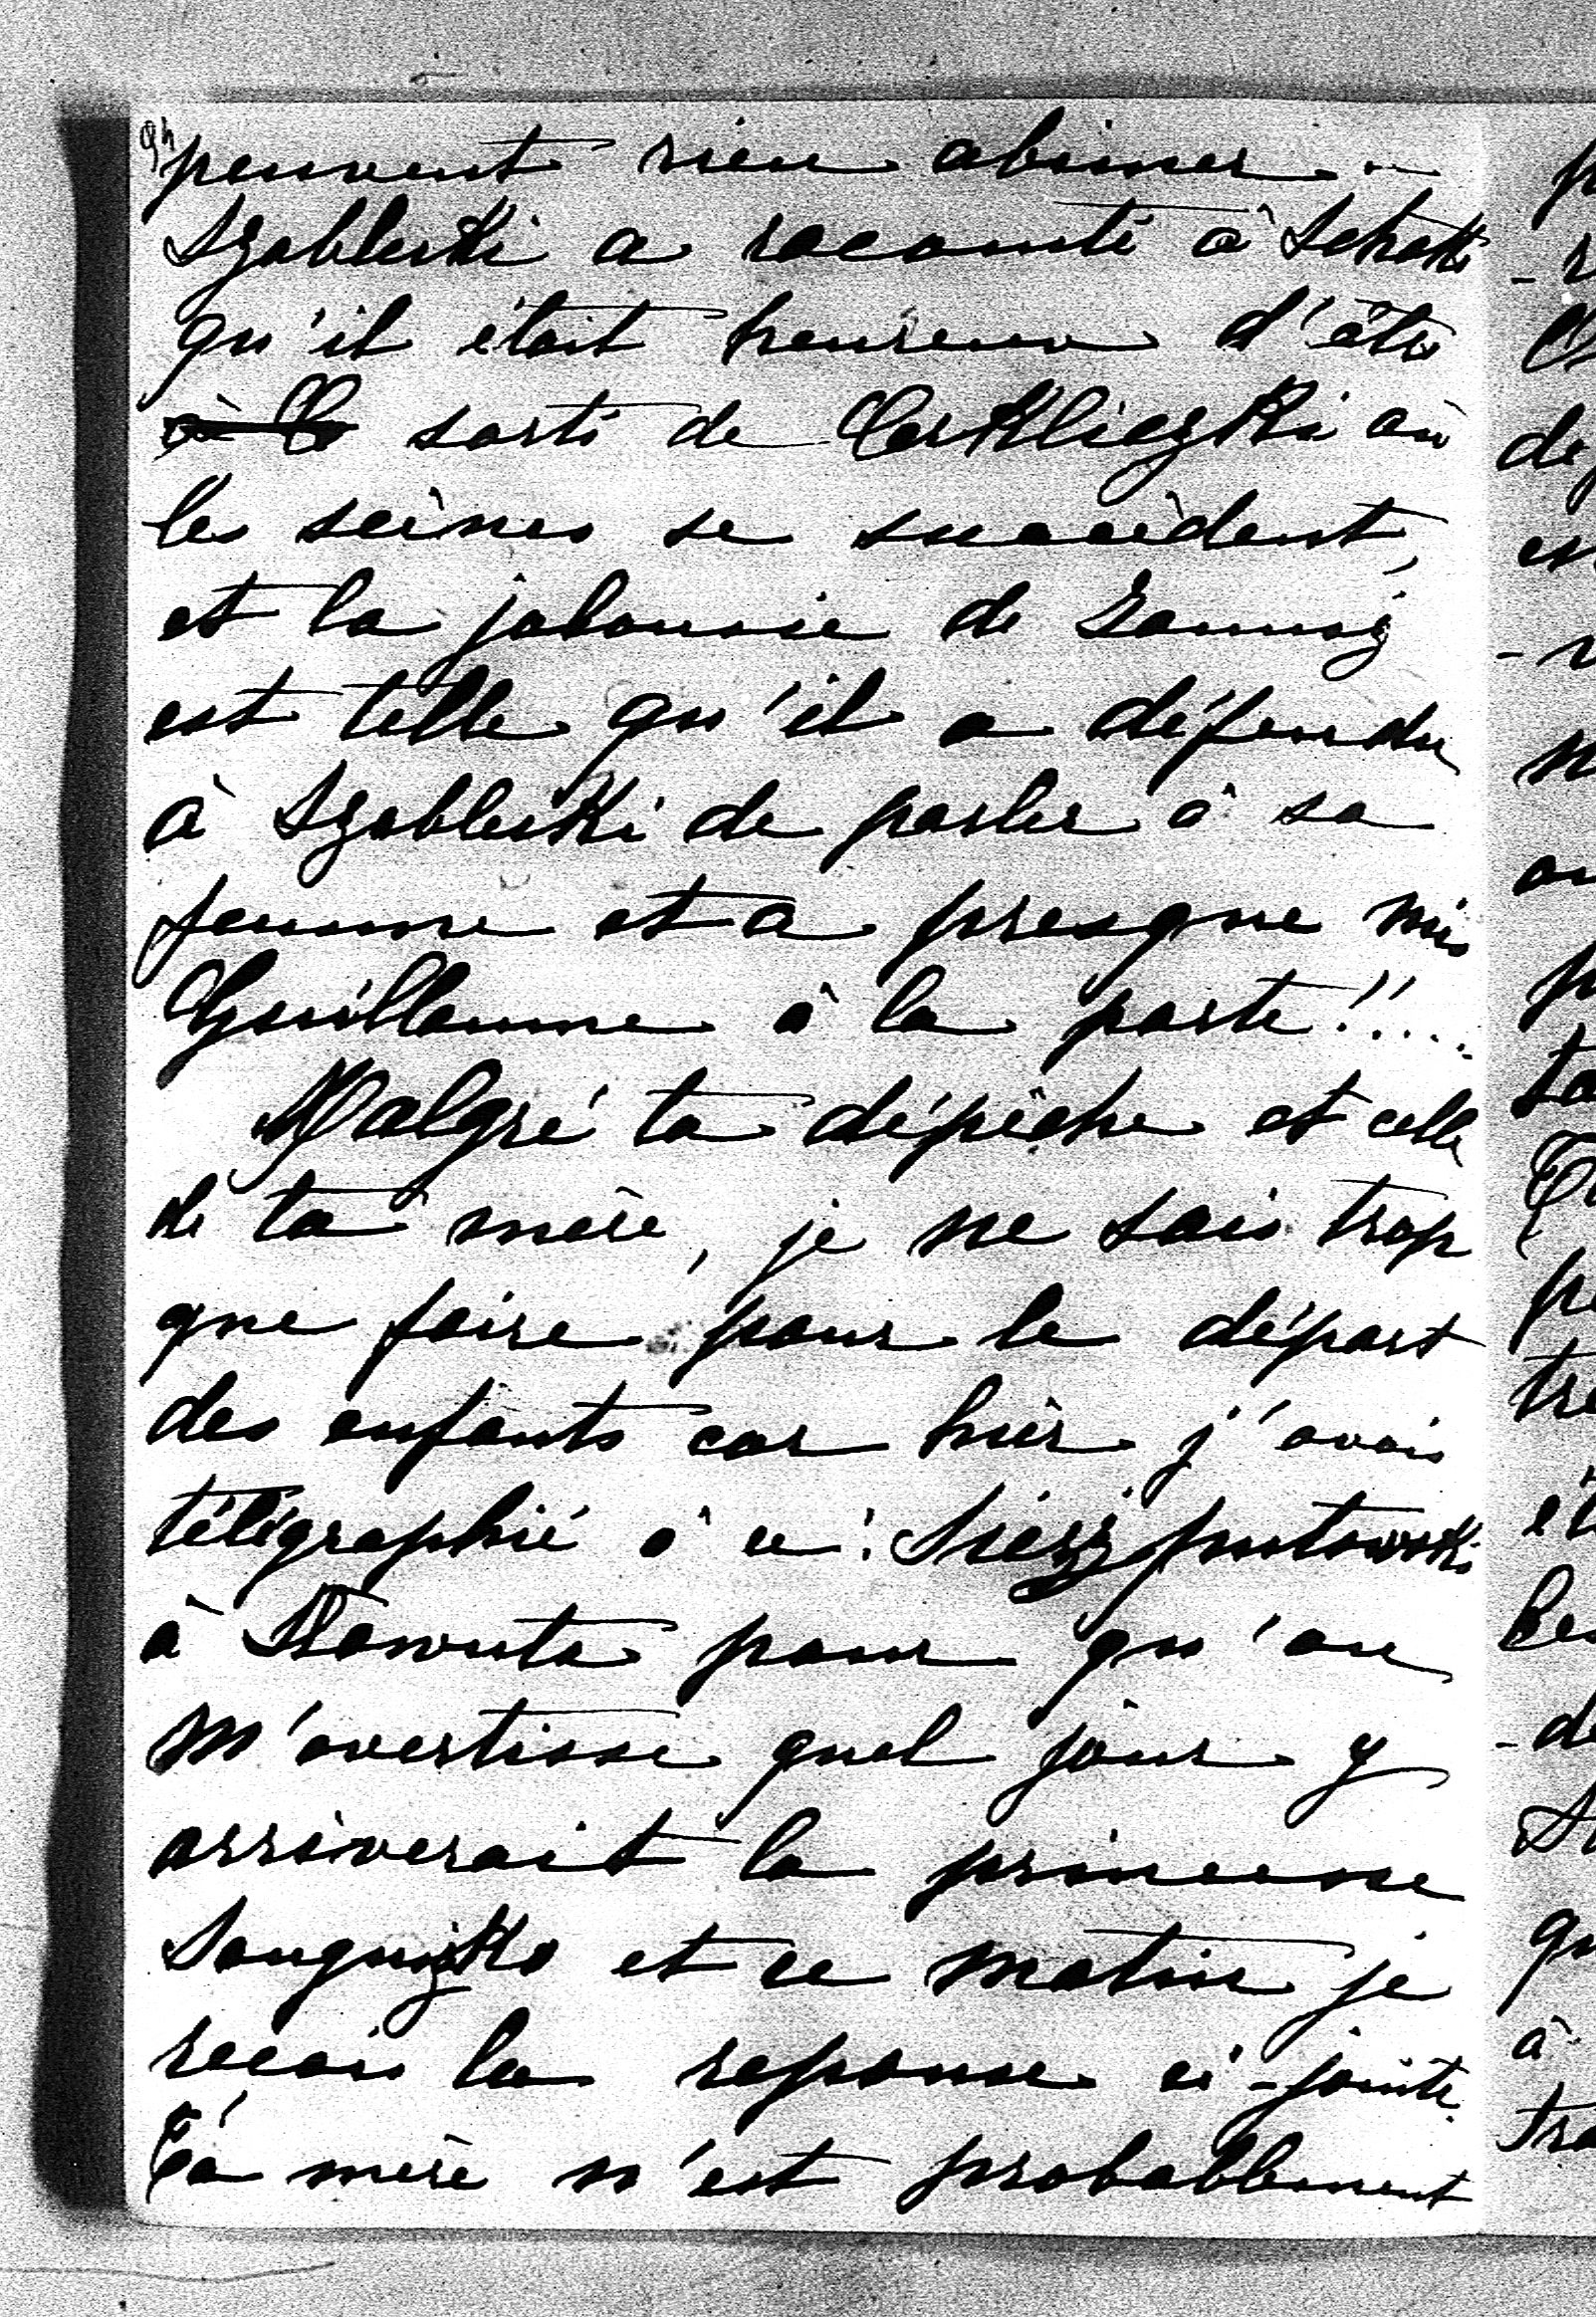 peuvent rien abimer. —
Szableski a raconté à
qu'il était heureux d'être
à sorti de Cerkliczki où
les scènes se succèdent,
et la jalousie de
est telle qu'il a défendu
à Szableski de parler à sa
femme et a presque mis
Guillaume à la porte!!....
Malgré ta dépêche et celle
de ta mère, je ne sais trop
que faire pour le départ
des enfants car hier j'avais
télégraphié à ce:
à Slawuta pour qu'on
m'avertisse quel jour y
arriverait la princesse
Sanguszko et ce matin je
recois la reponse ci-jointe.
Ta mère n'est probablement